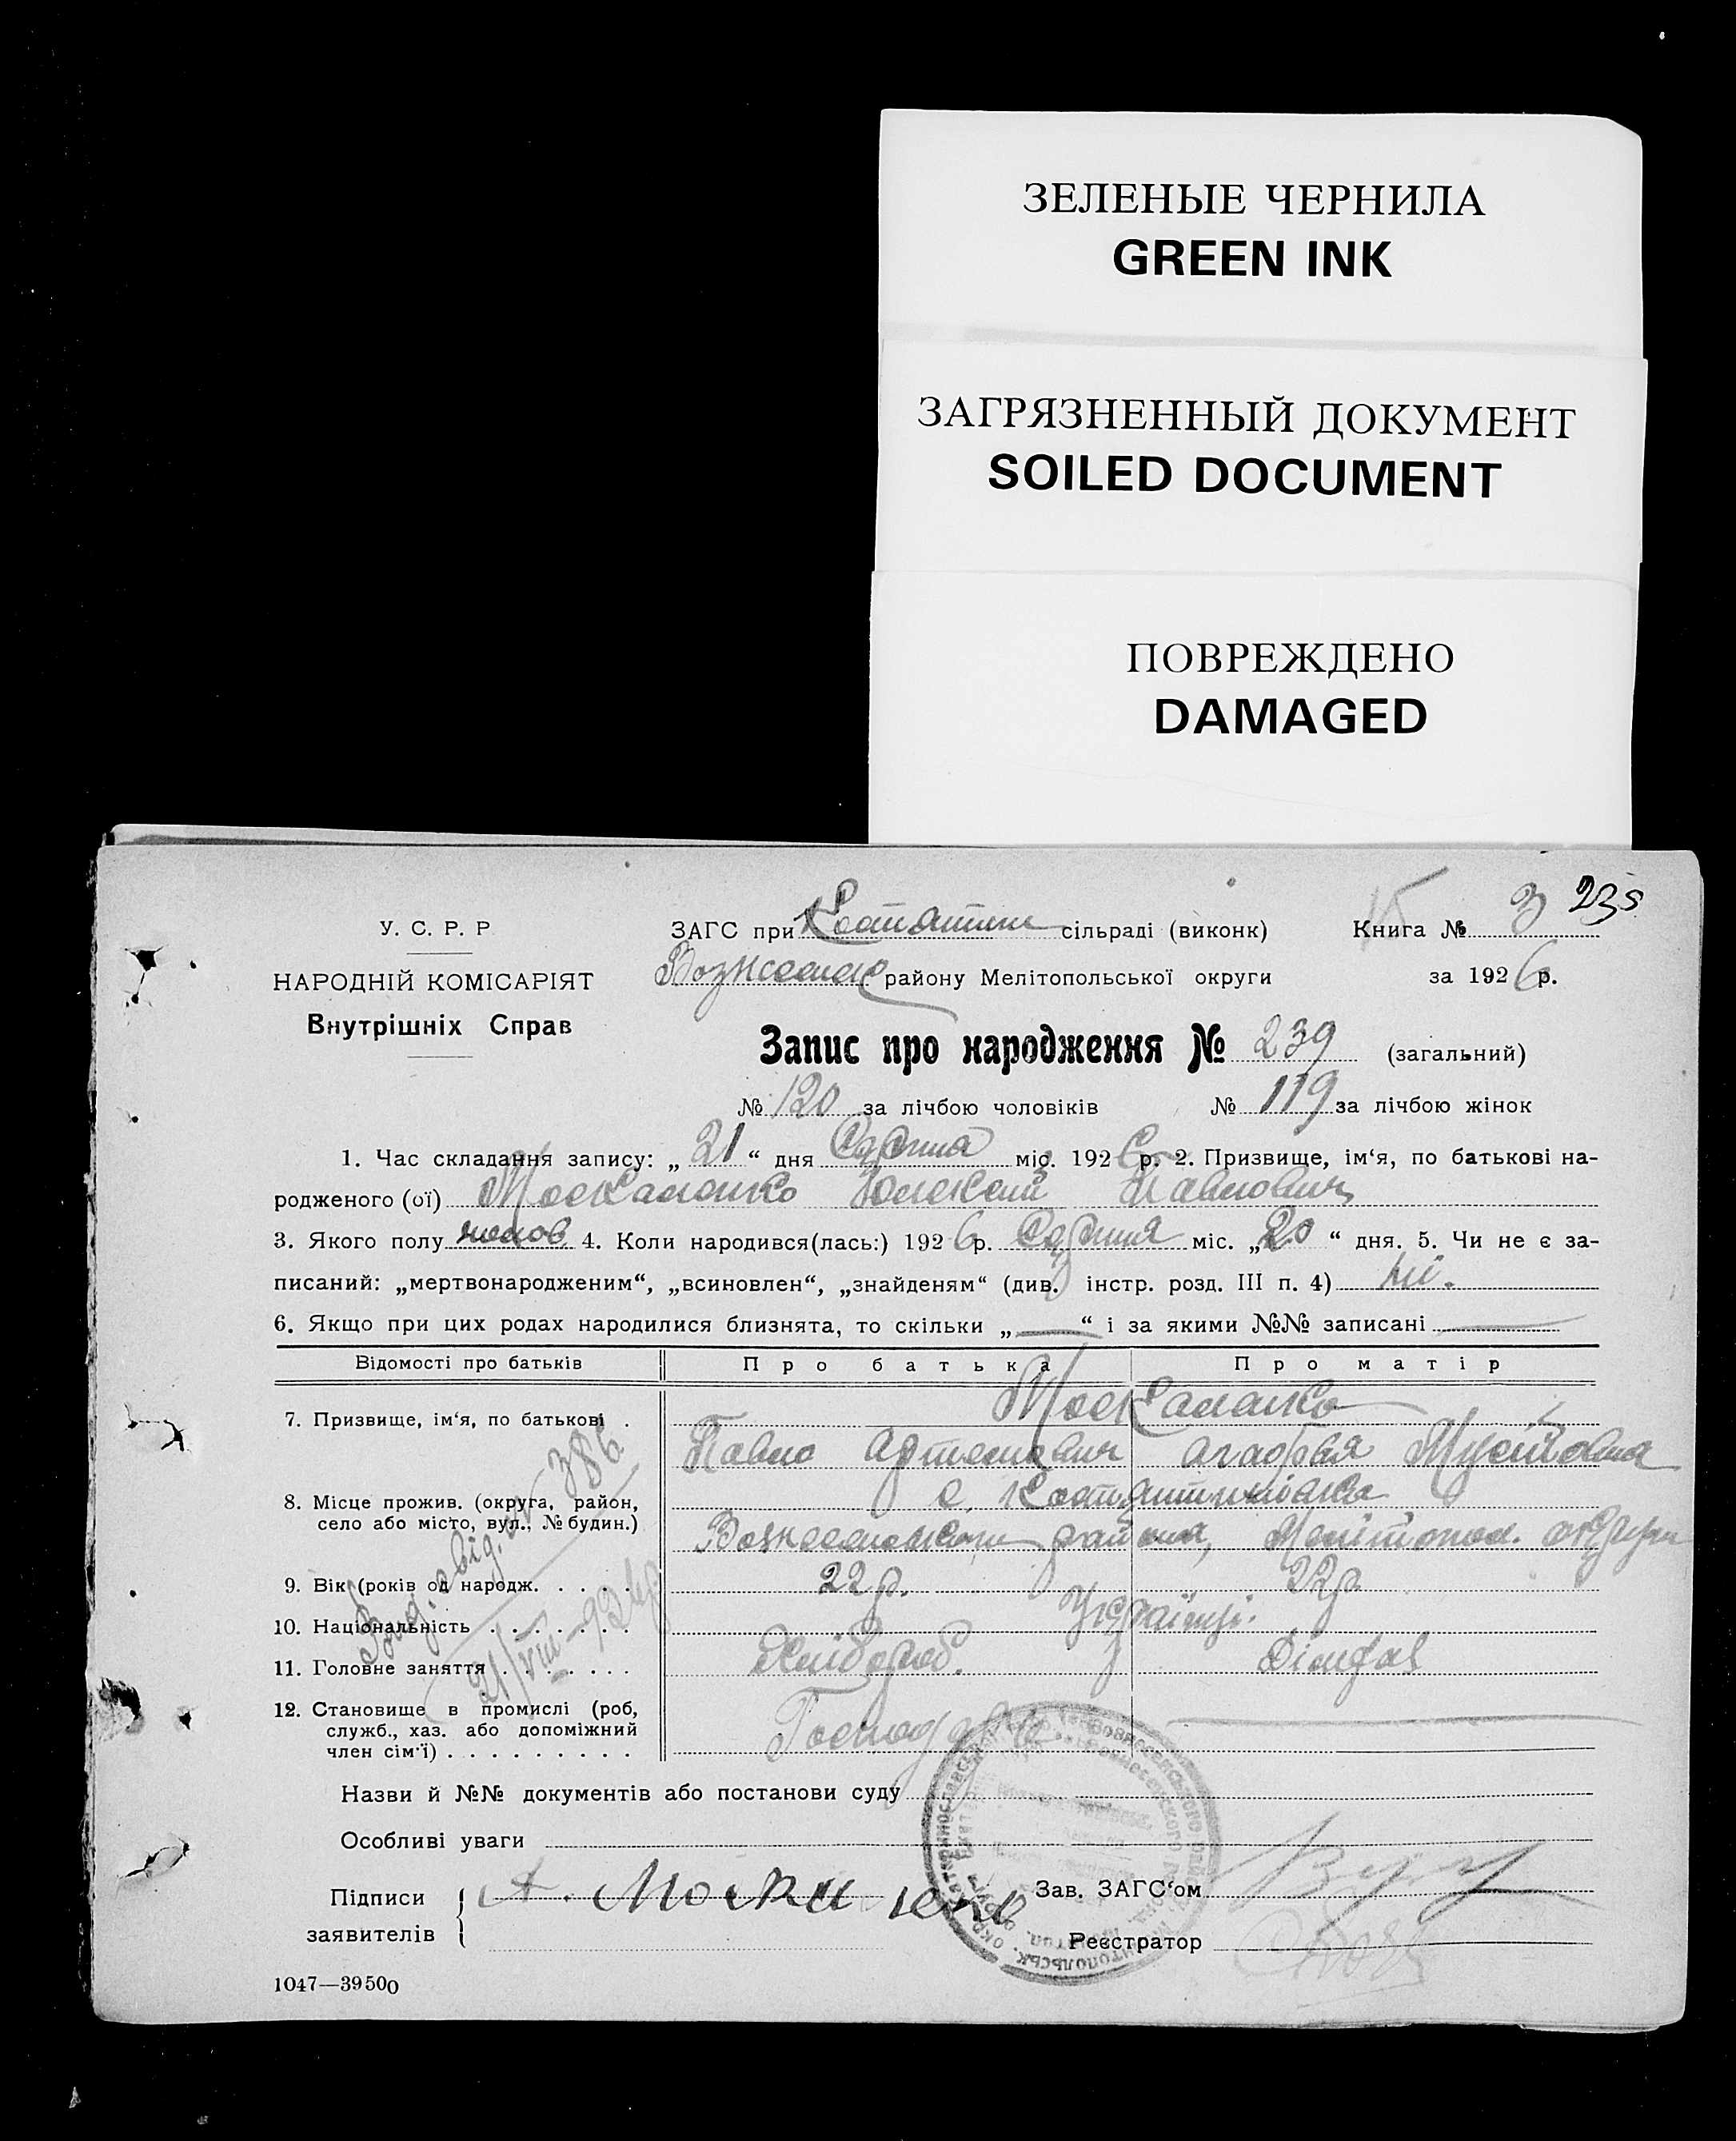 ЗЕЛЕНЫЕ ЧЕРНИЛА
GREEN INK
ЗАГРЯЗНЕННЫЙ ДОКУМЕНТ
SOILED DOCUMENT
ПОВРЕЖДЕНО
DAMAGED
15 3 235
У. С. Р. Р
НАРОДНІЙ КОМІСАРІЯТ
Внутрішніх Справ
ЗАГС при Костянтин сільраді (виконк) Книга №
Вознесенск району Мелітопольської округи за 1926 р.
Запис про народження № 239 (загальний)
№ 120 за лічбою чоловіків № 119 за лічбою жінок
1. Час складання запису: „ 21 “ дня Серпня міс. 1926 р. 2. Призвище, ім‘я, по батькові на-
родженого (ої) Москаленко Олексій Павлович
3. Якого полу чолов 4. Коли народився(лась:) 1926 р. Серпня міс. „20 “ дня. 5. Чи не є за-
писаний: „мертвонародженим“, „всиновлен“, „знайденям“ (див. інстр. розд. III п. 4) ні.
6. Якщо при цих родах народилися близнята, то скільки „ “ і за якими №№ записані
Відомості про батьків Про батька Про матір
7. Призвище, ім‘я, по батькові . Москаленко
Павло Артемович Агафья
8. Місце прожив. (округа, район, село або місто, вул., № будин.) с. Костянтинівка
Вознесенського району, Мелітопол. округи
9. Вік (років од народж. . . . . 22 р. 22 р
10. Національність . . . . . . . Українці.
11. Головне заняття . . . . . . . Хлібороб.
12. Становище в промислі (роб, служб., хаз. або допоміжний член сім‘ї) . . . . . . . . . Господар
Вид. свід. № 386
21/VIII-926р.
Назви й №№ документів або постанови суду
Особливі уваги
Підписи заявителів А. Москаленко
Зав. ЗАГС‘ом
Реєстратор
1047—39500